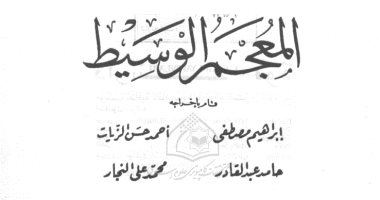 المعجم الوسيط
قام بإخراجه
إبراهيم مصطفى أحمد حسن الزيات
حامد عبد القادر محمد علي النجار